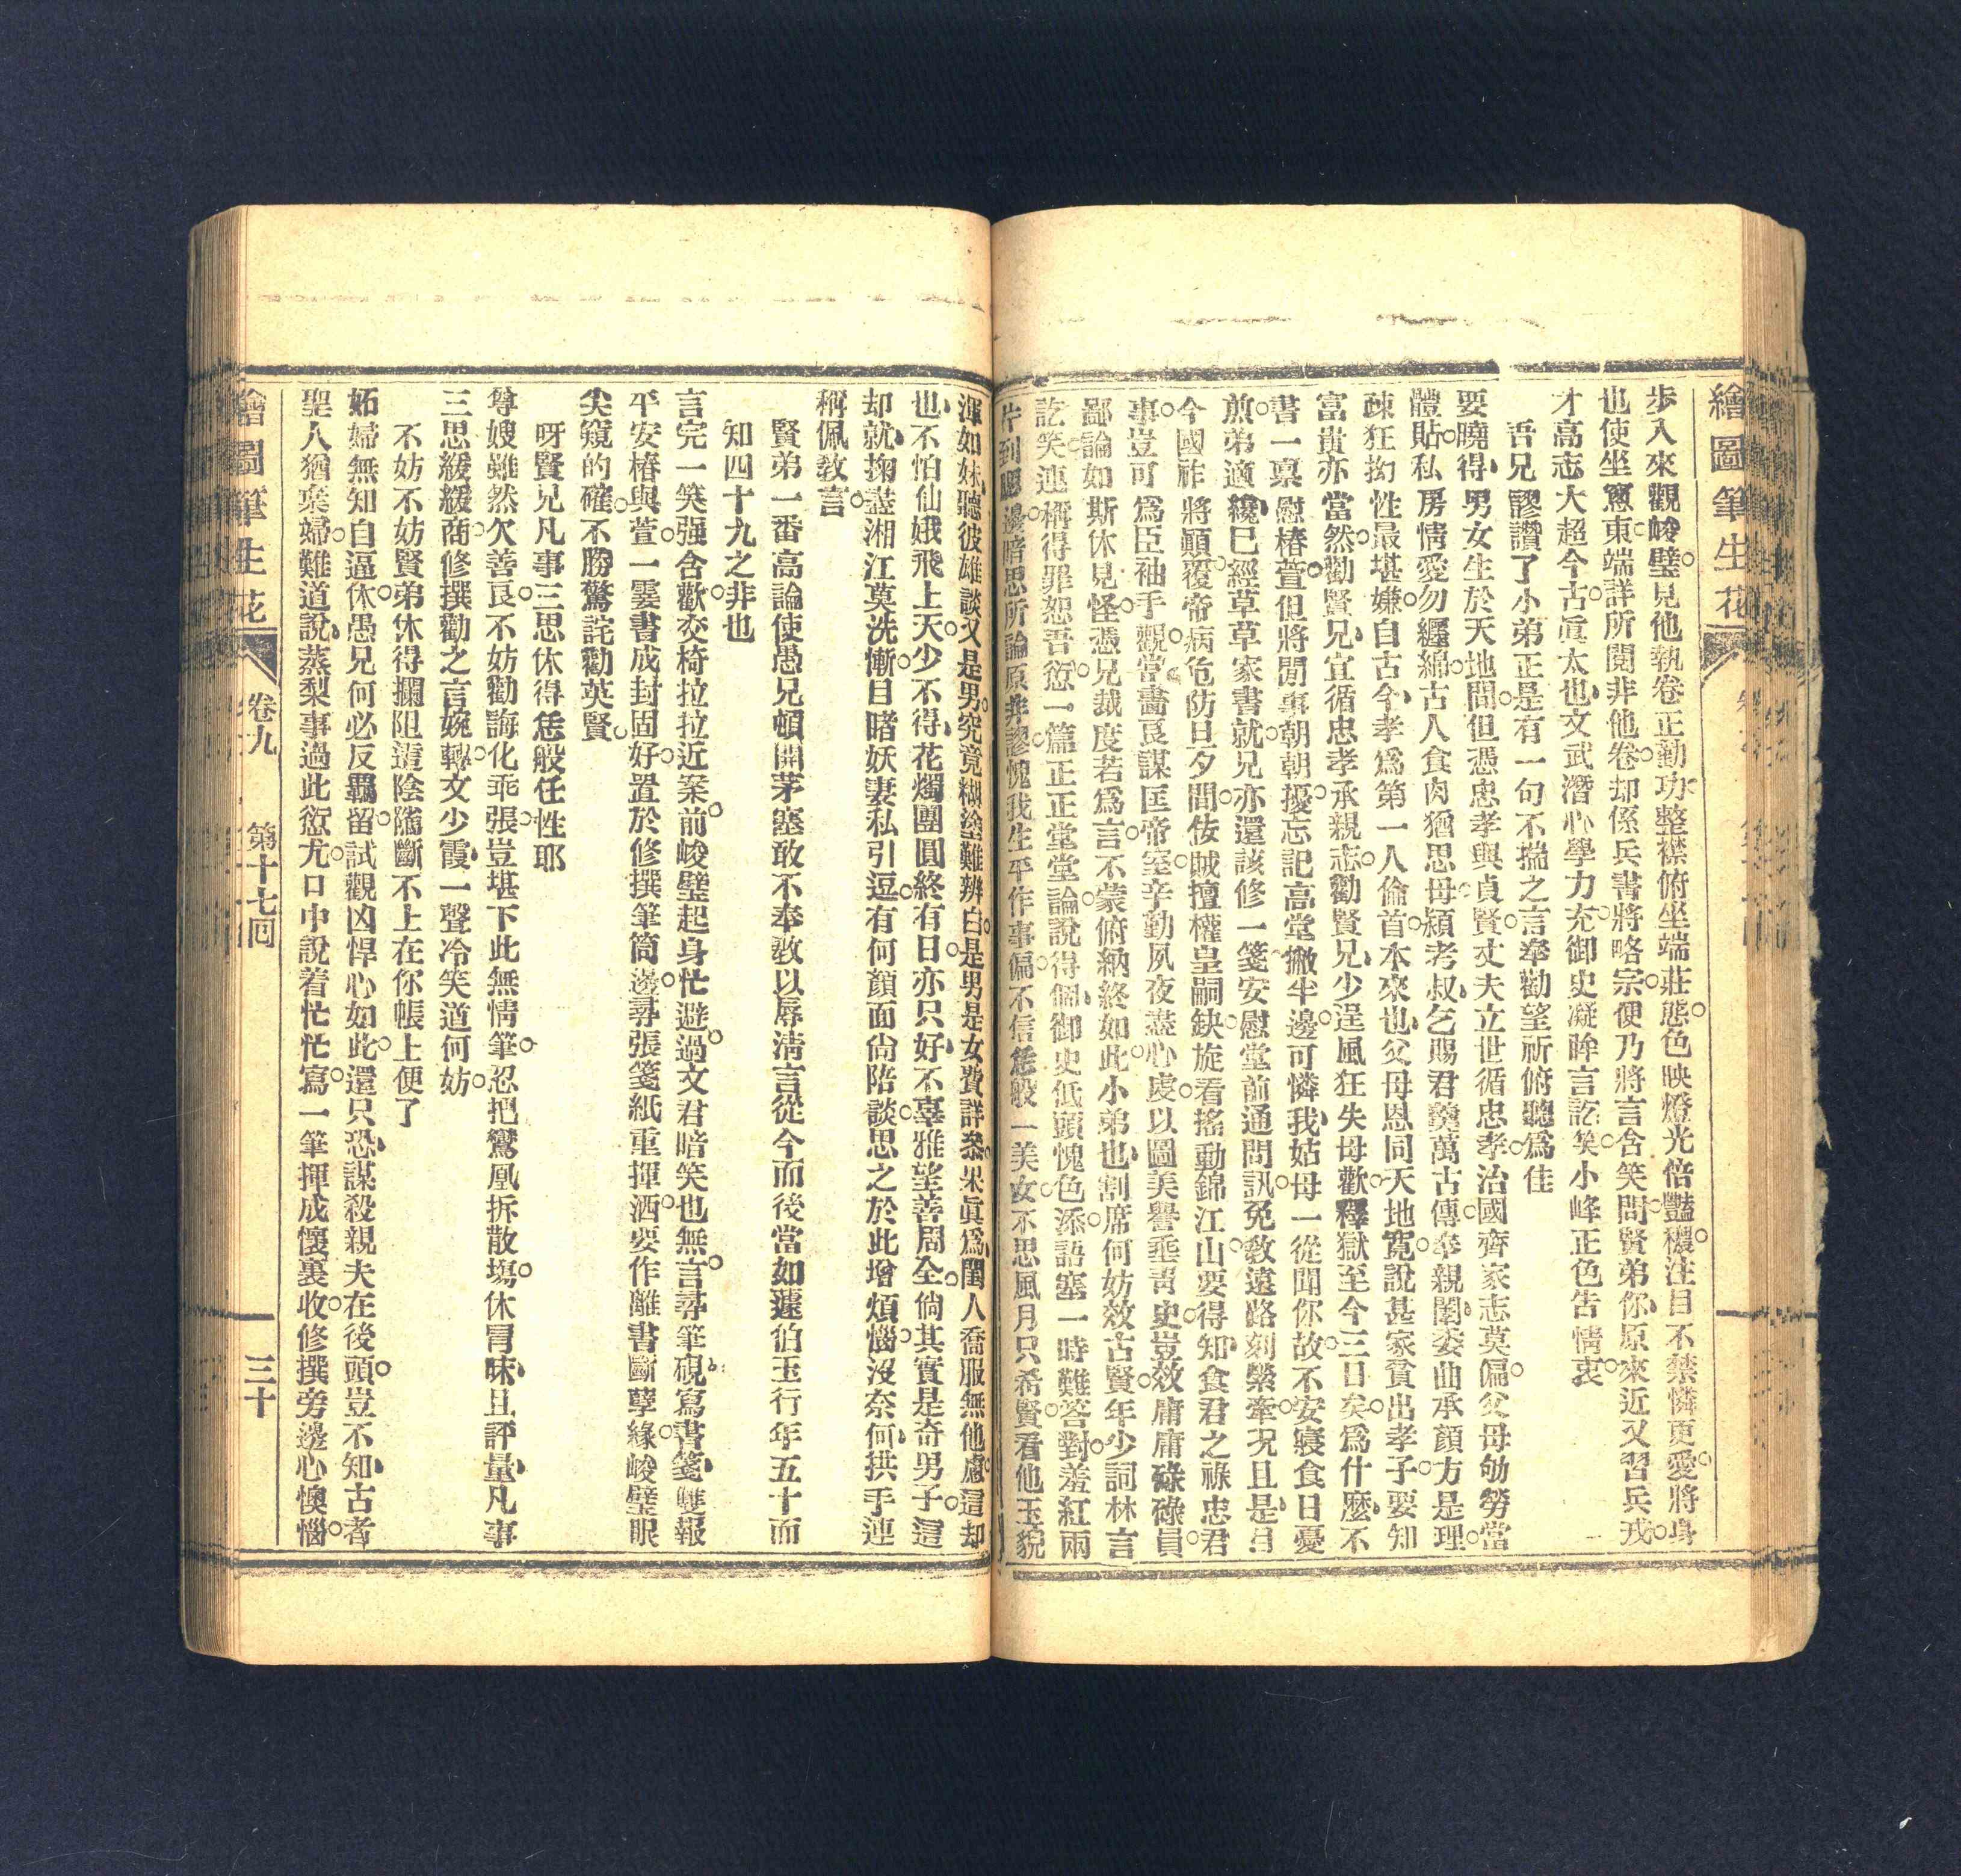 繪圖筆生花
步入來觀峻璧見他執卷正勤功整襟俯坐端莊態色映燈光倍豔穠注目不禁憐更愛將身
也使坐窻東端詳所閱非他卷却係兵書將略宗便乃將言含笑問賢弟你原來近又習兵戎
才高志大超今古眞太也文武潛心學力充御史凝眸言訖笑小峰正色告情衷
吾兄謬讚了小弟正是有一句不揣之言奉勸望祈俯聽爲佳
要曉得男女生於天地間但憑忠孝與貞賢丈夫立世循忠孝治國齊家志莫偏父母劬勞當
體貼私房情愛勿纒綿古人食肉猶思母潁考叔乞賜君羹萬古傳奉親閨委曲承顔方是理
疎狂拗性最堪嫌自古今孝爲第一人倫首本來也父母恩同天地寬說甚家貧出孝子要知
富貴亦當然勸賢兄宜循忠孝承親志勸賢兄少逞風狂失母歡釋獄至今三日矣爲什麼不
書一稟慰椿萱但將閒事朝朝擾忘記高堂撇半邊可憐我姑母一從聞你故不安寢食日憂
煎弟適纔已經草草家書就兄亦還該修一箋安慰堂前通問訊免敎遠路刻縈牽況且是目
今國祚將顚覆帝病危防旦夕間佞賊擅權皇嗣缺旋看搖動錦江山要得知食君之祿忠君
事豈可爲臣袖手觀當畵良謀匡帝室辛勤夙夜盡心虔以圖美譽垂靑史豈效庸庸碌碌員
鄙論如斯休見怪憑兄裁度若爲言不蒙俯納終如此小弟也割席何妨效古賢年少詞林言
訖笑連稱得罪恕吾愆一篇正正堂堂論說得個御史低頭愧色添語塞一時難答對羞紅兩
片到腮邊暗思所論原非謬愧我生平作事偏不信恁般一美女不思風月只希賢看他玉貌
渾如妹聽彼雄談又是男究竟糊塗難辨白是男是女費詳叅果眞爲閨人喬服無他慮這却
也不怕仙娥飛上天少不得花燭團圓終有日亦只好不辜雅望善周全倘其實是奇男子這
却就掬盡湘江莫洗慚目睹妖妻私引逗有何顏面尙陪談思之於此增煩惱沒奈何拱手連
稱佩敎言
賢弟一番高論使愚兄頓開茅塞敢不奉敎以辱淸言從今而後當如蘧伯玉行年五十而
知四十九之非也
言完一笑强含歡交椅拉拉近案前峻璧起身忙避過文君暗笑也無言尋筆硯寫書箋雙報
平安椿與萱一霎書成封固好置於修撰筆筒邊尋張箋紙重揮洒要作離書斷孽緣峻璧眼
尖窺的確不勝驚詫勸英賢
呀賢兄凡事三思休得恁般任性耶
尊嫂雖然欠善良不妨勸誨化乖張豈堪下此無情筆忍把鸞凰拆散塲休冐昧且評量凡事
三思緩緩商修撰勸之言婉轉文少霞一聲冷笑道何妨
不妨不妨賢弟休得攔阻這陰隲斷不上在你帳上便了
妬婦無知自逼休愚兄何必反羈留試觀凶悍心如此還只恐謀殺親夫在後頭豈不知古者
聖人猶棄婦難道說蒸梨事過此愆尤口中說着忙忙寫一筆揮成懷裏收修撰旁邊心懊惱
繪圖筆生花
卷九
第十七回
三十